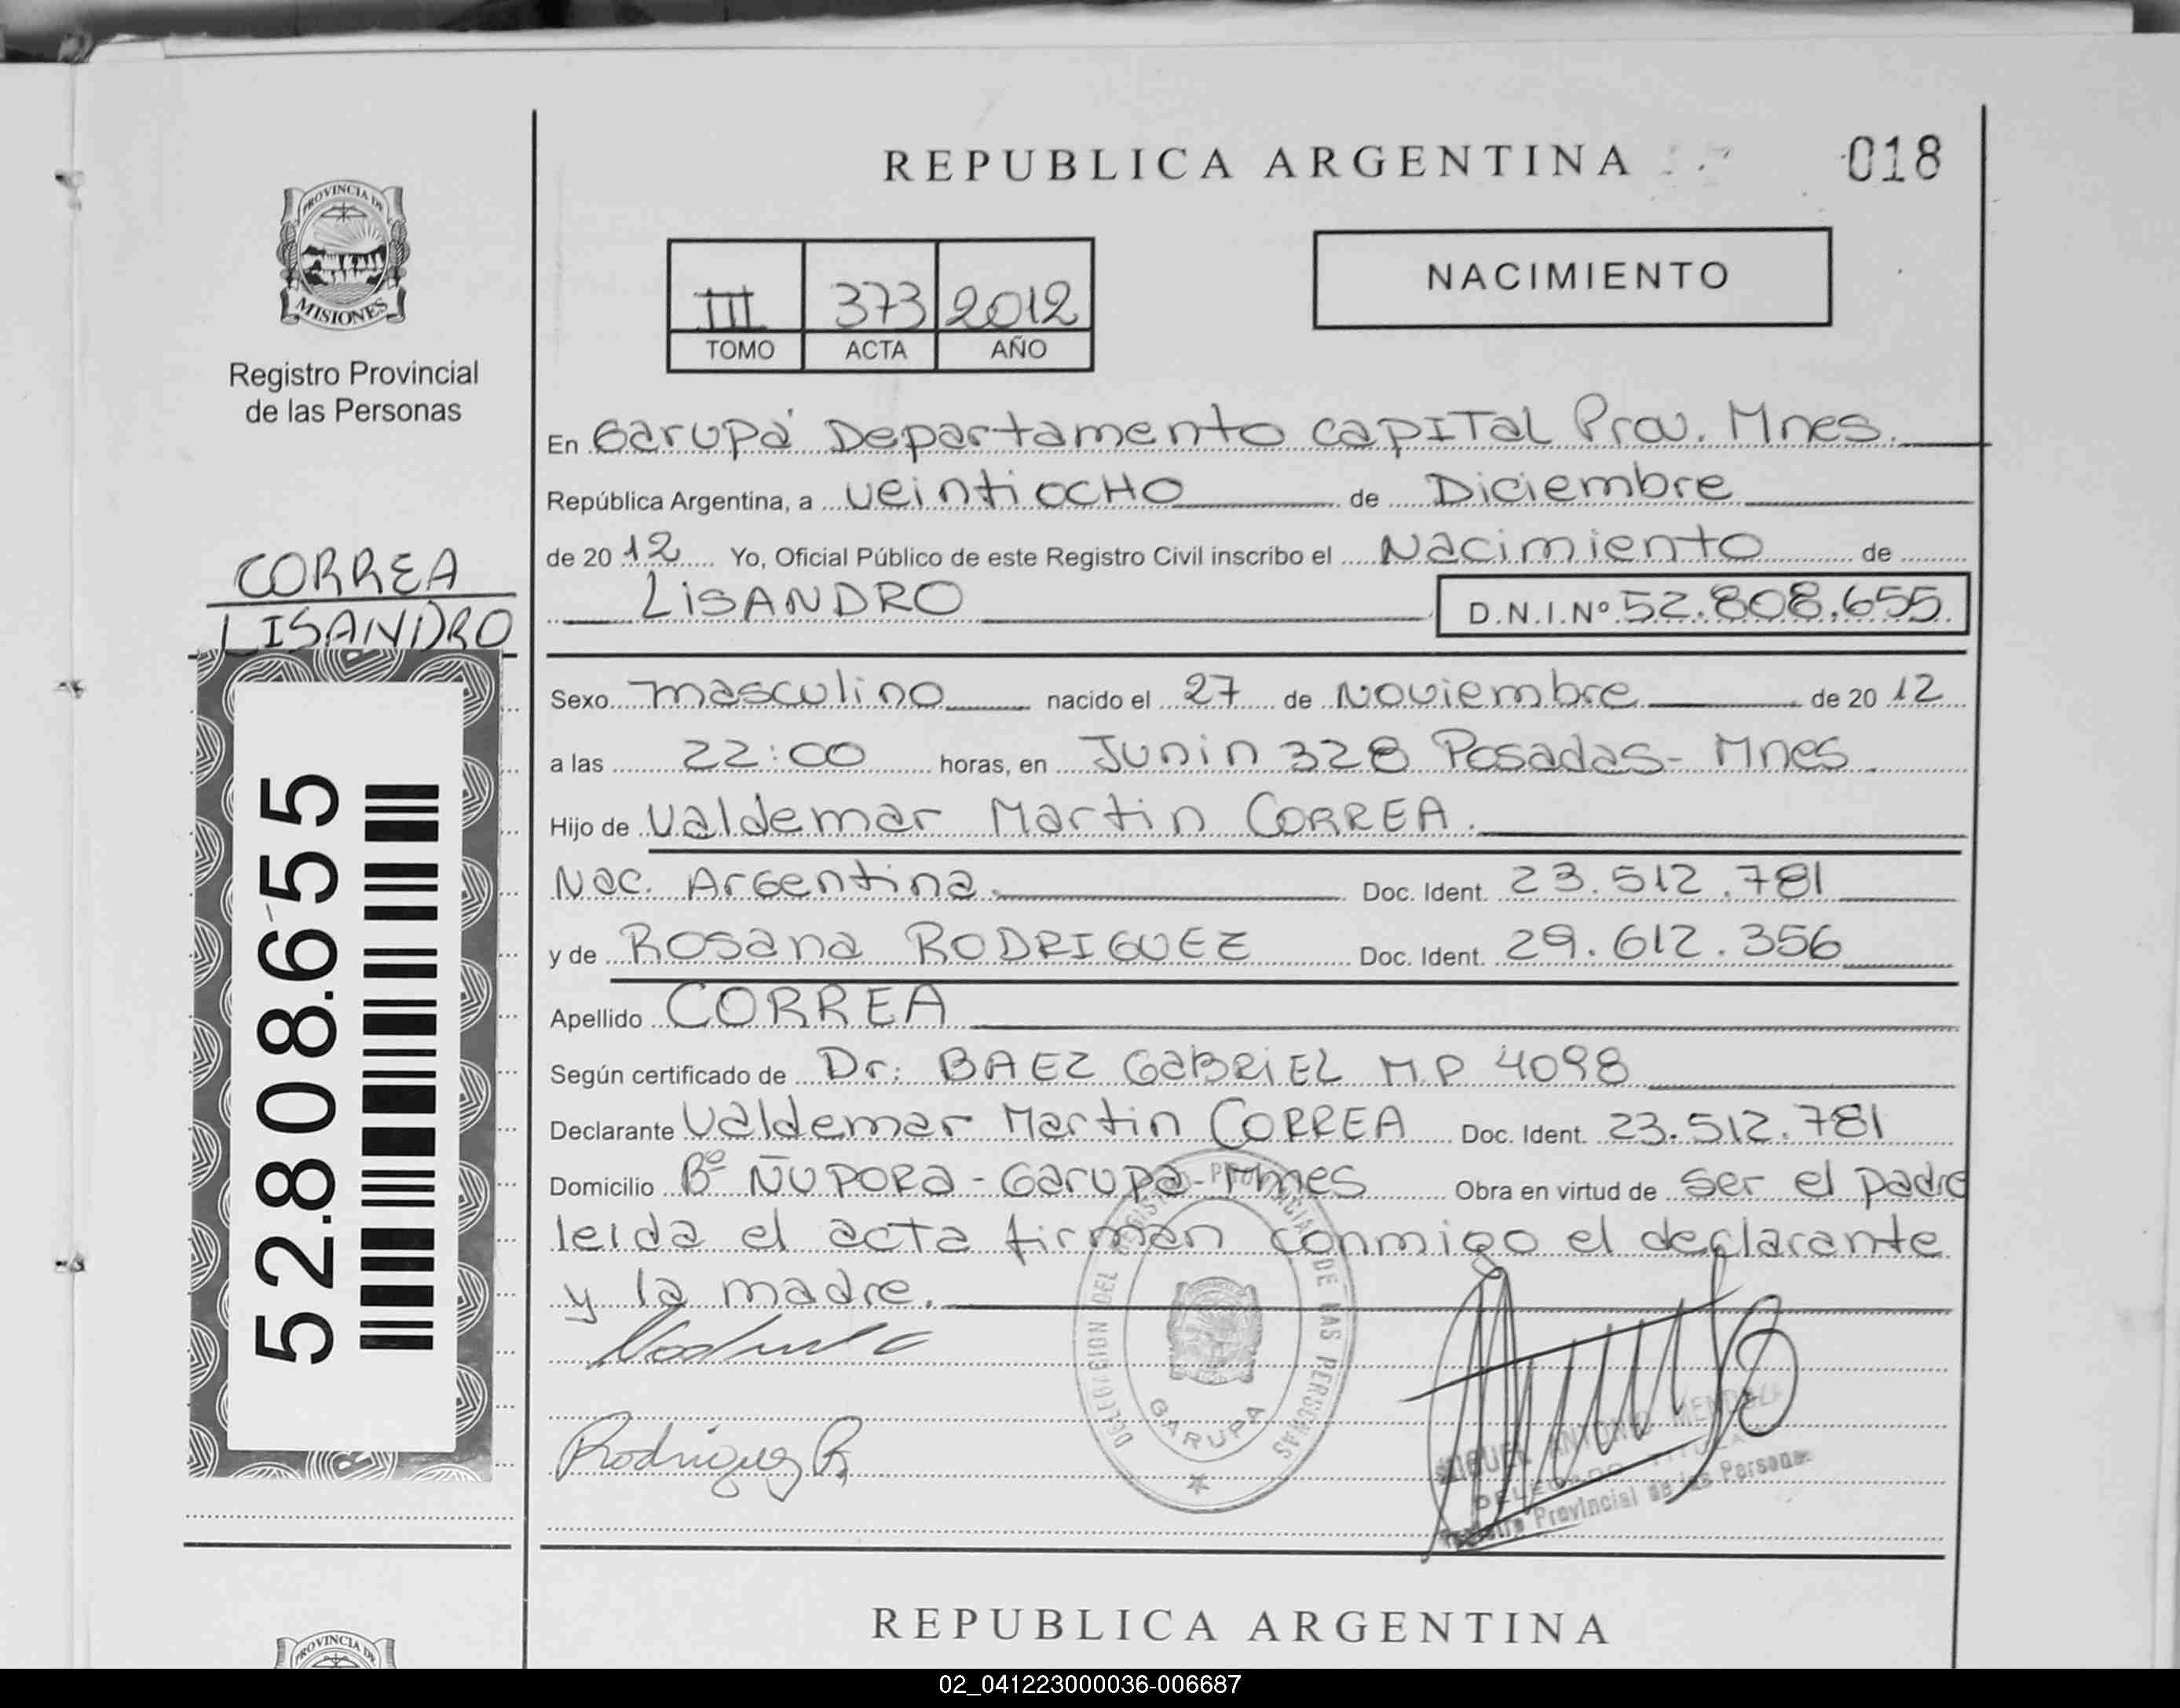 REPUBLICA ARGENTINA
018
PROVINCIA DE
MISIONES
Registro Provincial
de las Personas
III 373 2012
TOMO ACTA AÑO
NACIMIENTO
En Garupá Departamento CAPITAL Prov. Mnes.
República Argentina, a veintiocho de Diciembre
de 2012 Yo, Oficial Público de este Registro Civil inscribo el Nacimiento de
LISANDRO D.N.I.Nº 52.808.655
CORREA
LISANDRO
52.808.655
Sexo masculino nacido el 27 de Noviembre de 2012
a las 22:00 horas, en Junin 328 Posadas- Mnes.
Hijo de Valdemar Martin CORREA.
Nac. Argentina. Doc. Ident. 23.512.781
y de Rosana RODRIGUEZ Doc. Ident. 29.612.356
Apellido CORREA
Según certificado de Dr: BAEZ GABRIEL M.P 4098
Declarante Valdemar Martin CORREA Doc. Ident. 23.512.781
Domicilio Bº ÑUPORA - Garupa - Mnes Obra en virtud de ser el padre
leida el acta firman conmigo el declarante
y la madre.
DELEGACION DEL REGISTRO PROVINCIAL DE LAS PERSONAS
GARUPA
Rodriguez R.
MIGUEL ANTONIO MENDOZA
DELEGADO TITULAR
Registro Provincial de las Personas
REPUBLICA ARGENTINA
PROVINCIA DE
02_041223000036-006687